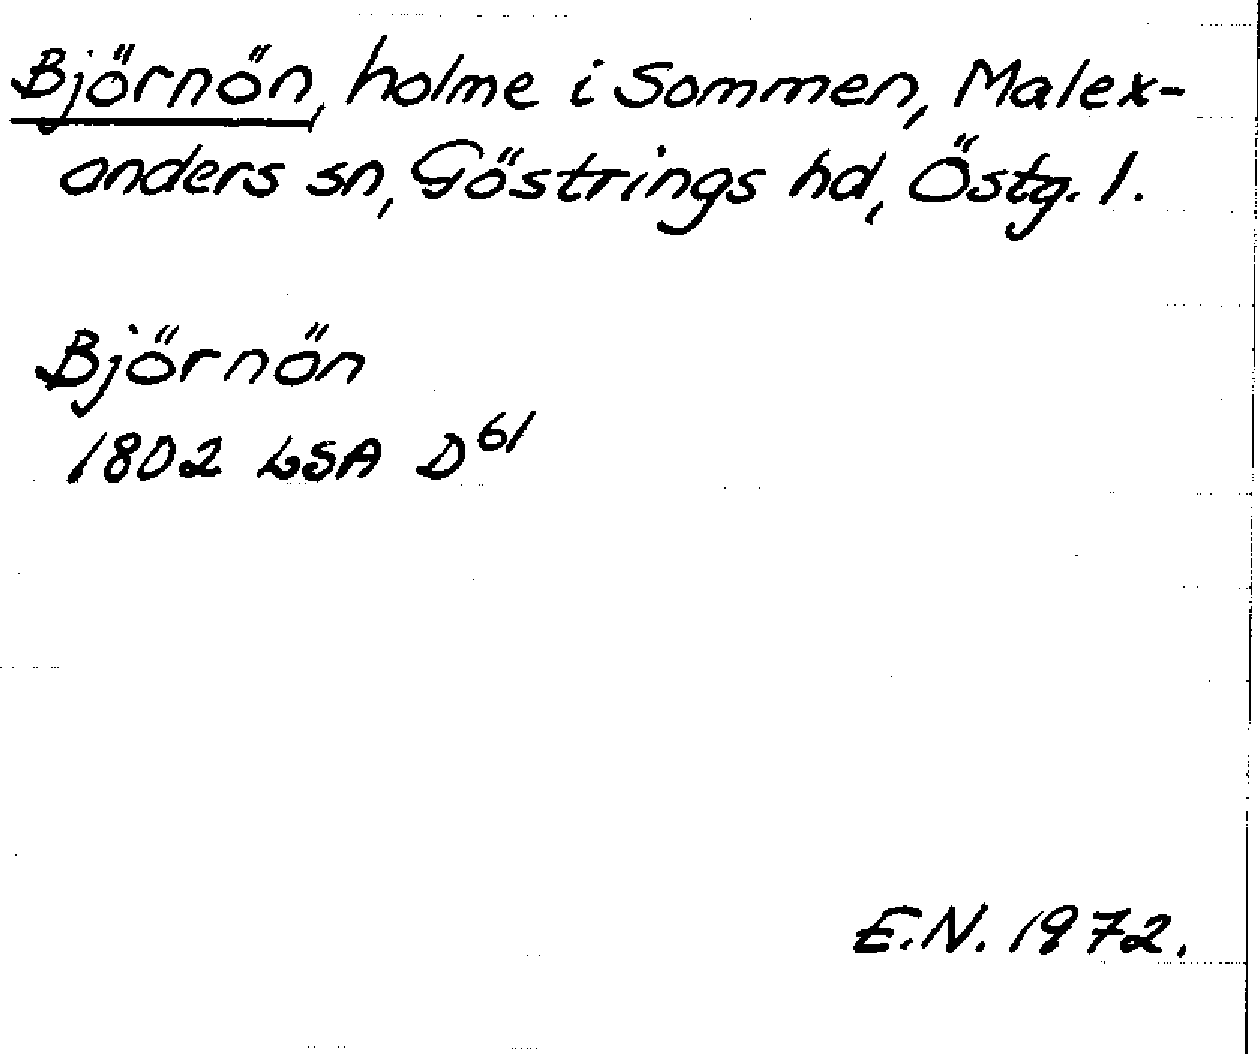 Björnön, holme i Sommen, Malex-
anders sn, Göstrings hd, Östg. l.
Björnön
1802 LSA D 61
E.N. 1972.